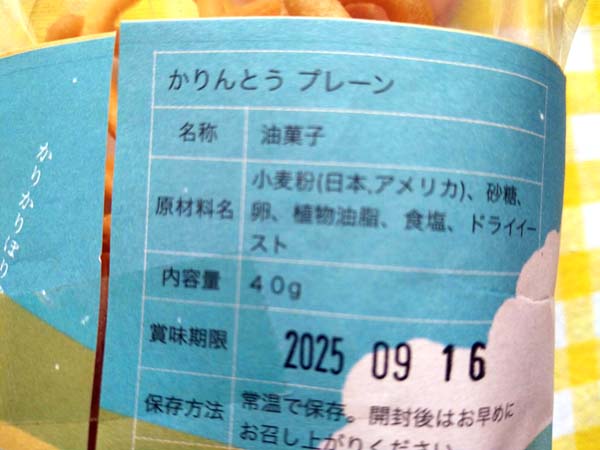 かりんとう プレーン
名称 油菓子
原材料名 小麦粉(日本,アメリカ)、砂糖、
卵、植物油脂、食塩、ドライイー
スト
内容量 40g
賞味期限 2025 09 16
保存方法 常温で保存。開封後はお早めに
お召し上がりください
かりかりほり